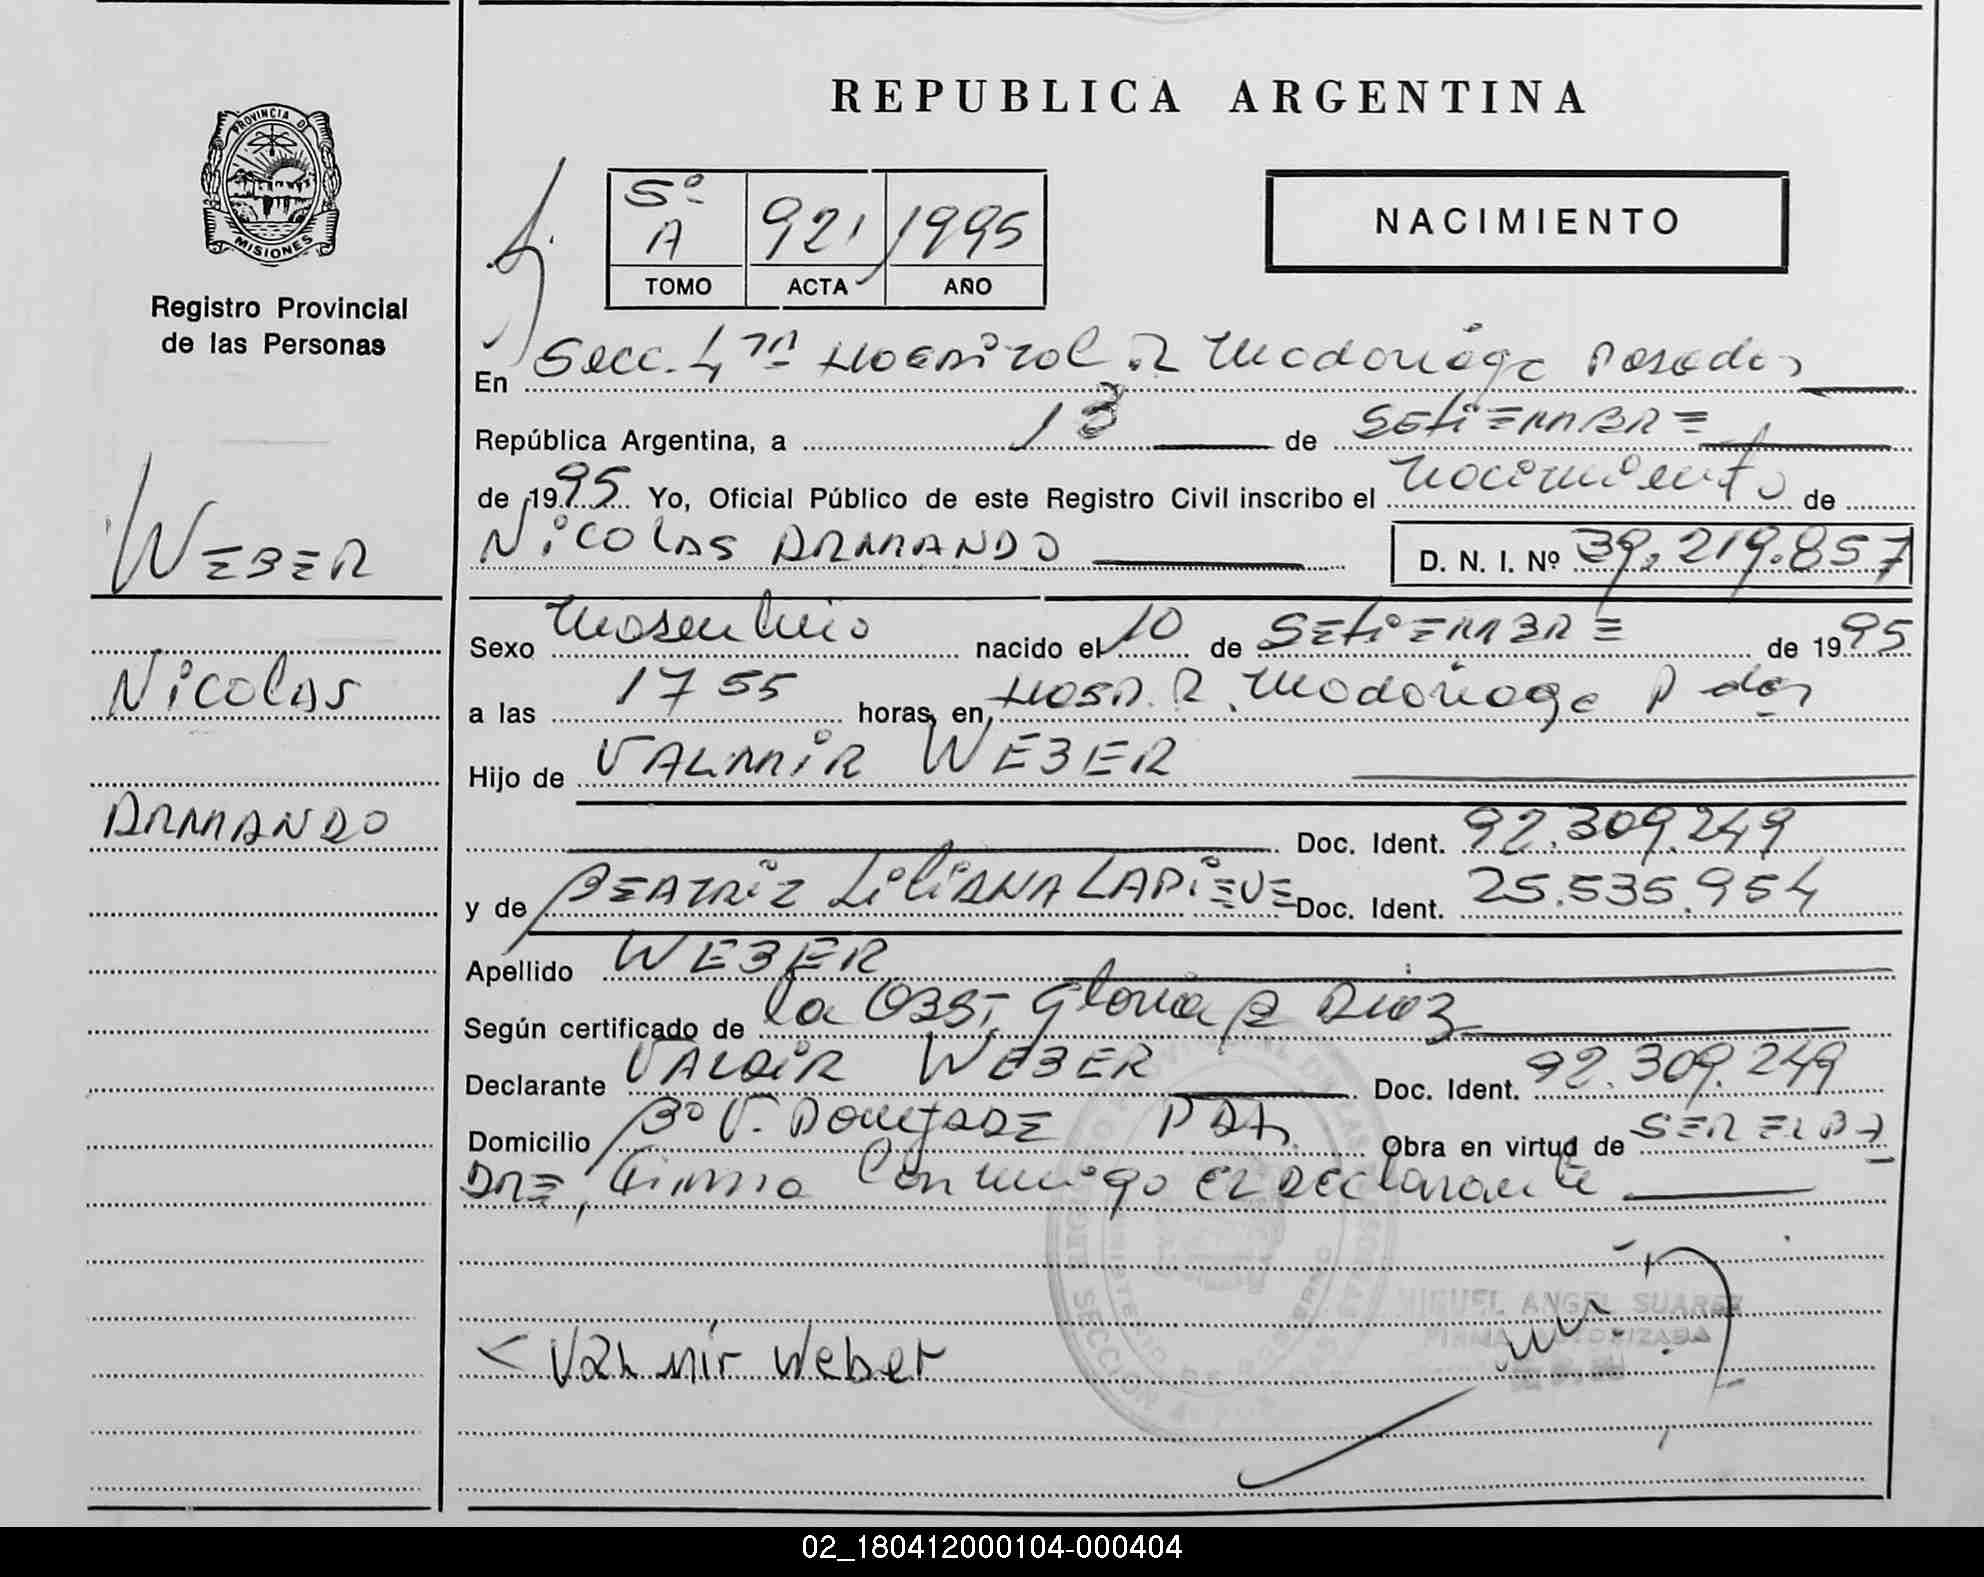 REPUBLICA ARGENTINA
PROVINCIA D
MISIONES
Registro Provincial
de las Personas
5º
A 921 1995
TOMO ACTA AÑO
NACIMIENTO
En Secc. 4ª Hospital R Madariaga Posadas
República Argentina, a 13 de SETIEMBRE
de 1995 Yo, Oficial Público de este Registro Civil inscribo el nacimiento de
NICOLAS ARMANDO D. N. I. Nº 39.219.857
WEBER
NICOLAS
ARMANDO
Sexo Masculino nacido el 10 de SETIEMBRE de 1995
a las 17 55 horas, en HOSP. R. Madariaga P das
Hijo de VALMIR WEBER
Doc. Ident. 92.309.249
y de BEATRIZ LILIANA LAPIEVE Doc. Ident. 25.535.954
Apellido WEBER
Según certificado de la OBST. Gloria Diaz
Declarante VALMIR WEBER Doc. Ident. 92.309.249
Domicilio Bº V. PDAS. Obra en virtud de SER EL PA
DRE, Firma Conmigo EL DEClarante
MIGUEL ANGEL SUAREZ
FIRMA AUTORIZADA
Valmir Weber
02_180412000104-000404